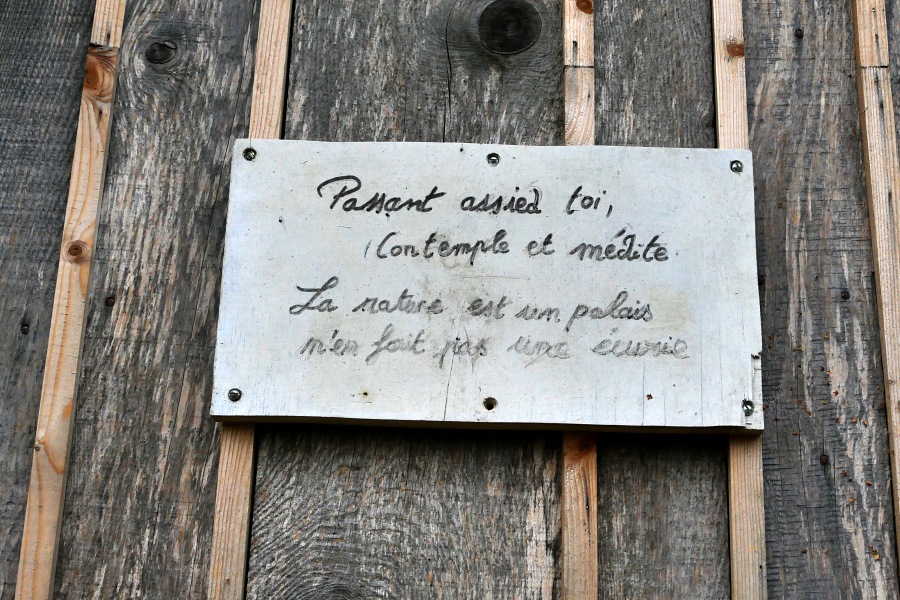 Passant assied toi,
Contemple et médite
La nature est un palais
n'en fait pas une écurie